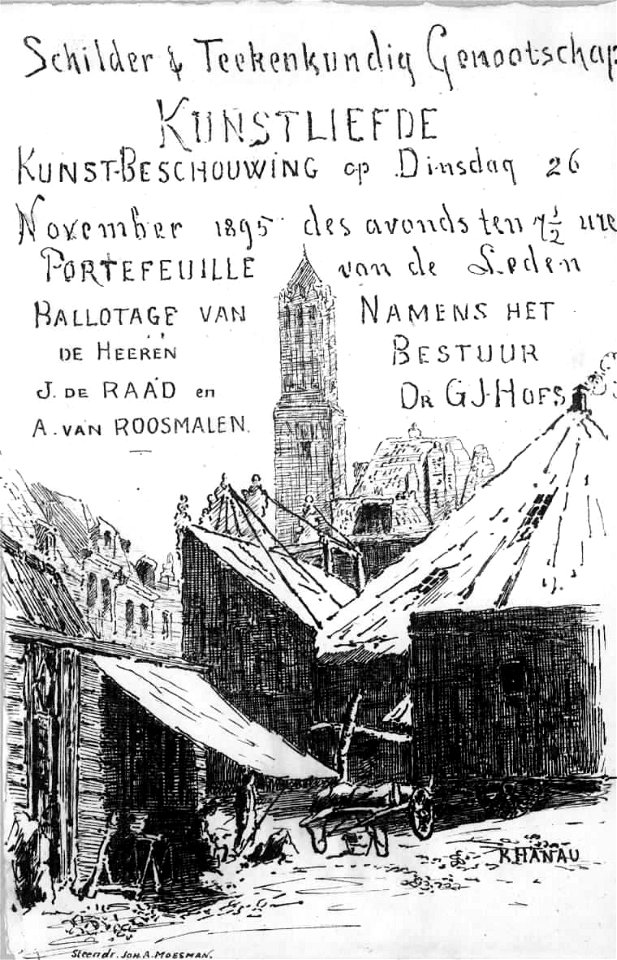 Schilder & Teekenkundig Genootschap
KUNSTLIEFDE
KUNST-BESCHOUWING op Dinsdag 26
November 1895 des avonds ten 7½ ure
PORTEFEUILLE van de Leden
BALLOTAGE VAN
DE HEEREN
J. DE RAAD en
A. VAN ROOSMALEN.
NAMENS HET
BESTUUR
DR G.J. HOFS
R. HANAU
Steendr. JOH. A. MOESMAN.